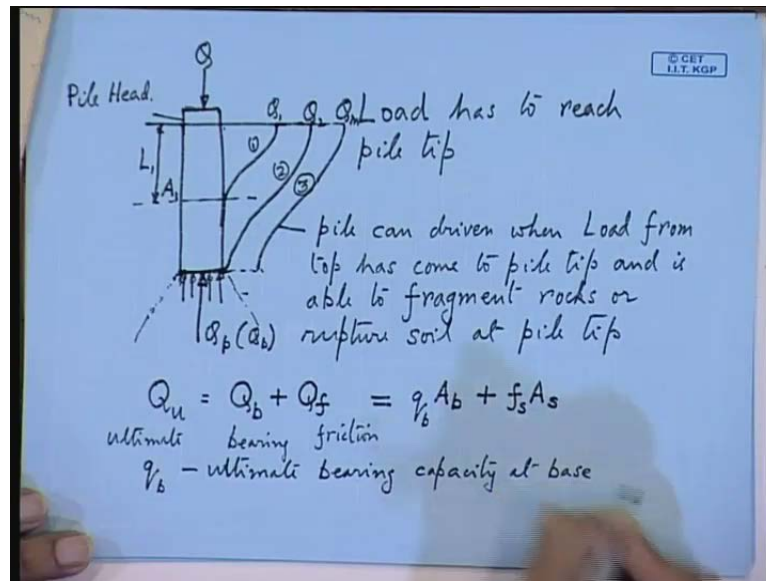 Q
© CET
I.I.T. KGP
Pile Head.
Q₁ Q₂ Qm Load has to reach
pile tip
L₁
①
②
③
A₁
pile can driven when Load from
top has come to pile tip and is
able to fragment rocks or
rupture soil at pile tip
Qp (Qb)
Qu = Qb + Qf = qb Ab + fs As
ultimate bearing friction
qb - ultimate bearing capacity at base